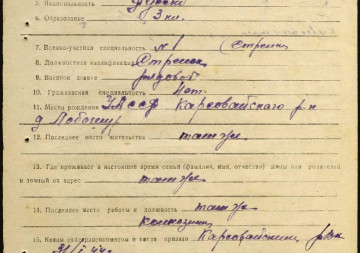 5. Национальность русский
6. Образование 3 кл.
7. Военно-учетная специальность №1 (Стрелк.
8. Должностная квалификация Стрелок
9. Военное звание рядовой
10. Гражданская специальность Нет.
11. Место рождения УАССР Карсовайского р-н
д. Лобошур
12. Последнее место жительства там же
13. Где проживает в настоящее время семья (фамилия, имя, отчество) жены или родителей
и точный их адрес там же
14. Последнее место работы и должность там же
колхозник
15. Каким райвоенкоматом и когда призван Карсовайским рвк